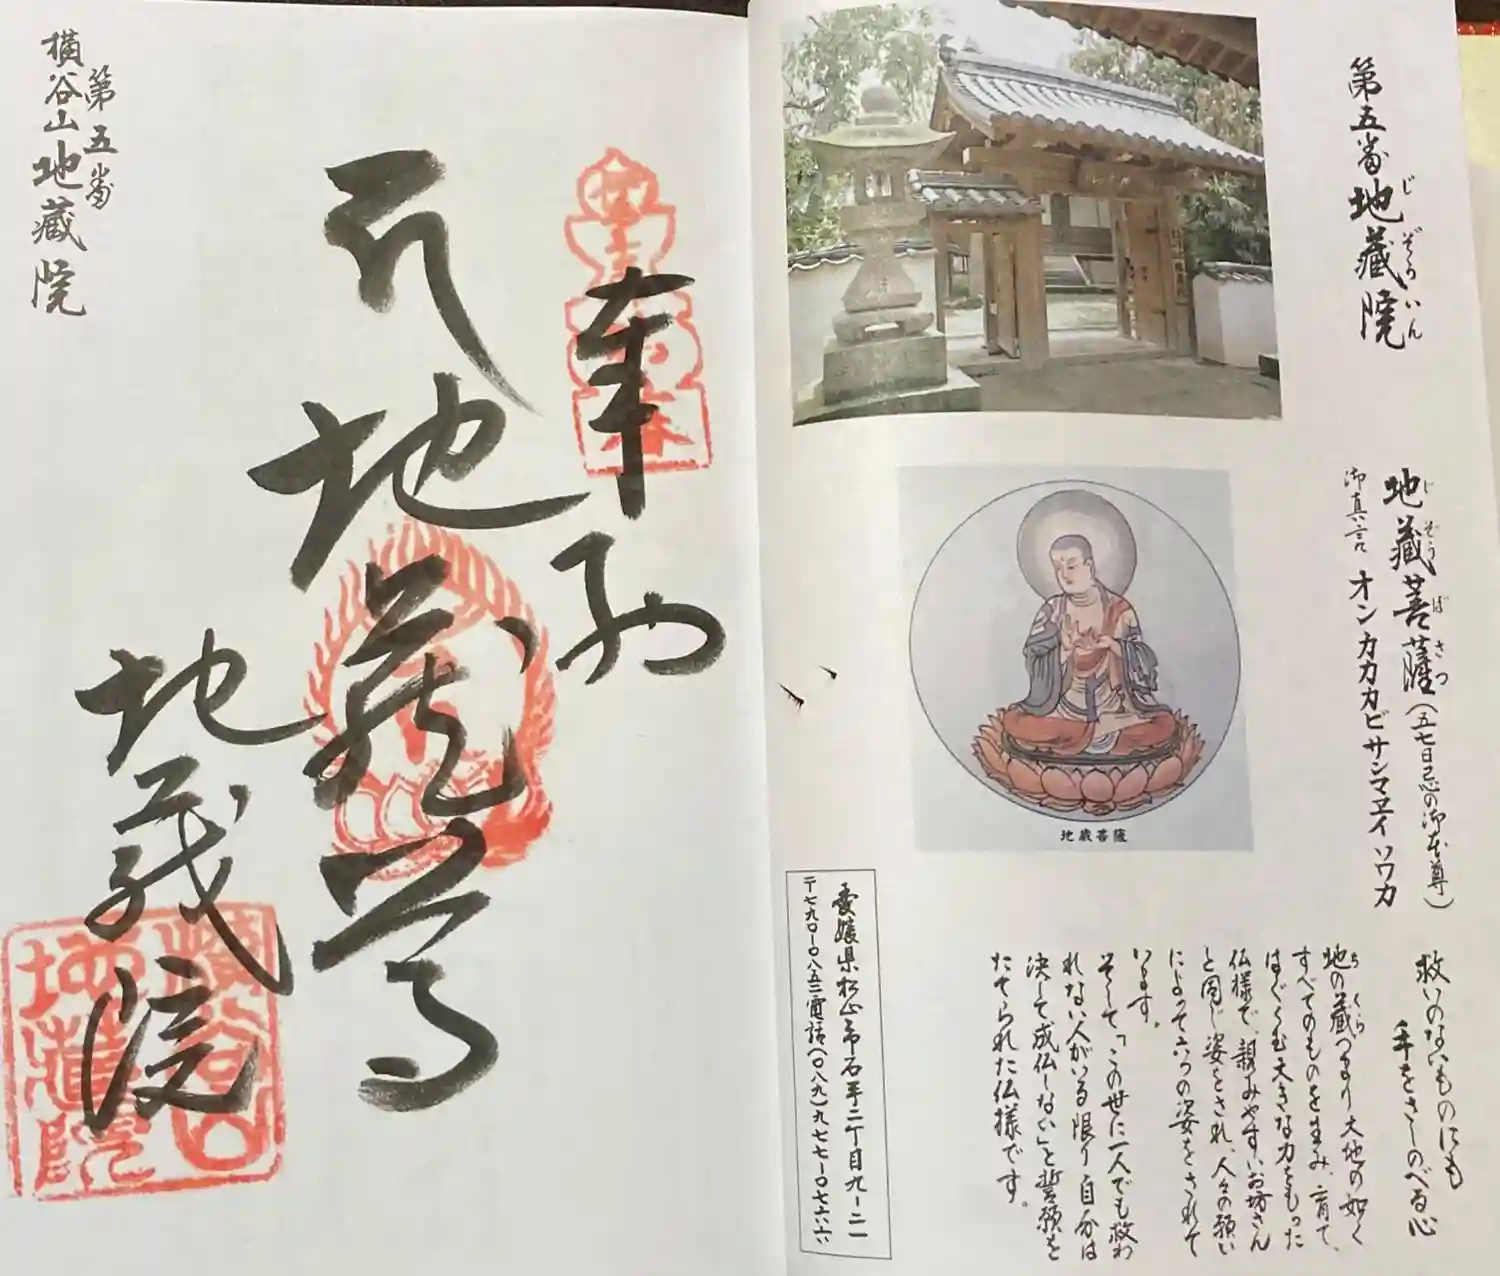 第五番 地蔵院
じぞういん
地蔵菩薩(五七日忌の御本尊)
じぞうぼさつ
御真言 オンカカカビサンマエイソワカ
救いのないものにも
手をさしのべる心
地の蔵つまり大地の如く
ち くら
すべてのものを生み、育て、
はぐくむ大きな力をもった
仏様で、親みやすいお坊さん
と同じ姿をされ、人々の願い
によって六つの姿をされて
います。
そして「この世に一人でも救わ
れない人がいる限り自分は
決して成仏しない」と誓願を
たてられた仏様です。
地蔵菩薩
愛媛県松山市石手二丁目九ー二一
〒七九〇ー〇八五二 電話(〇八九)九七七ー〇七六六
奉納
地蔵尊
地蔵院
横谷山
地蔵院
第五番
横谷山地蔵院